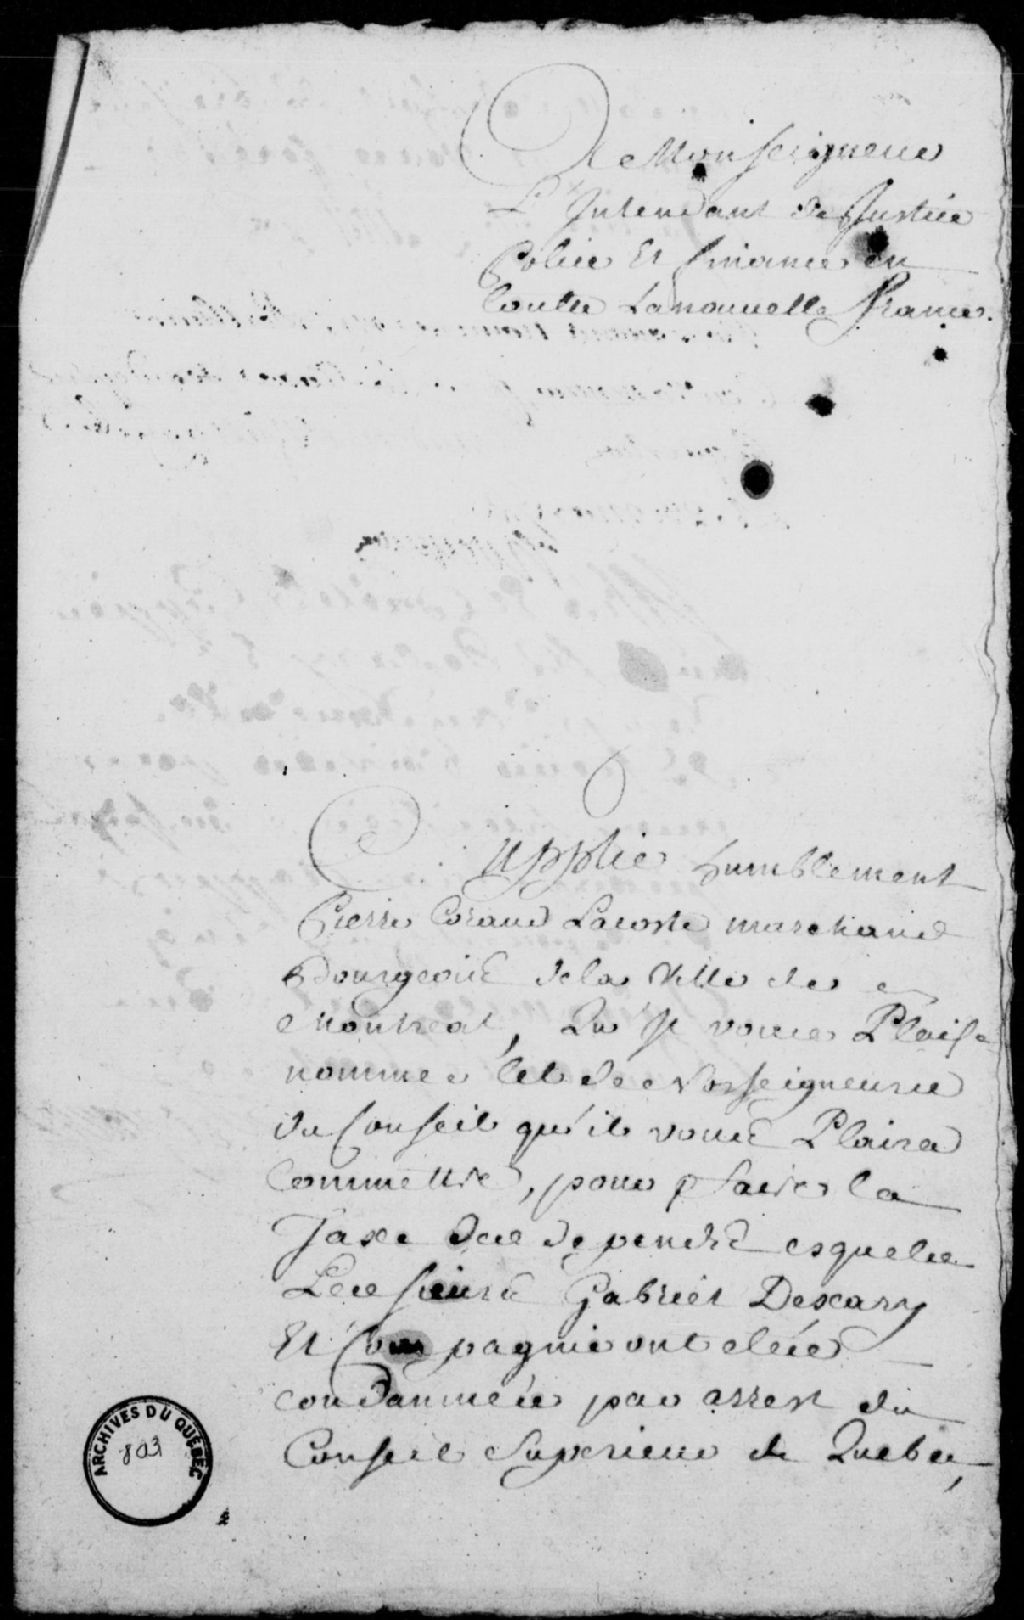 A Monseigneur
L'Intendant de Justice
Police Et finance en
toutte Lanouvelle france.
Supplie humblement
Pierre Coraud Lacoste marchand
Bourgeois dela Ville de
Montreal, Qu'Il vous Plaise
nommer tel de Nosseigneurs
du Conseil qu'il vous Plaira
Commettre, pour faire la
Taxe des depends esquels
Les sieurs Gabriel Descary
Et Compagnie ont etées
condamnées par arrest du
Conseil Superieur de Quebec,
ARCHIVES DU QUÉBEC
803